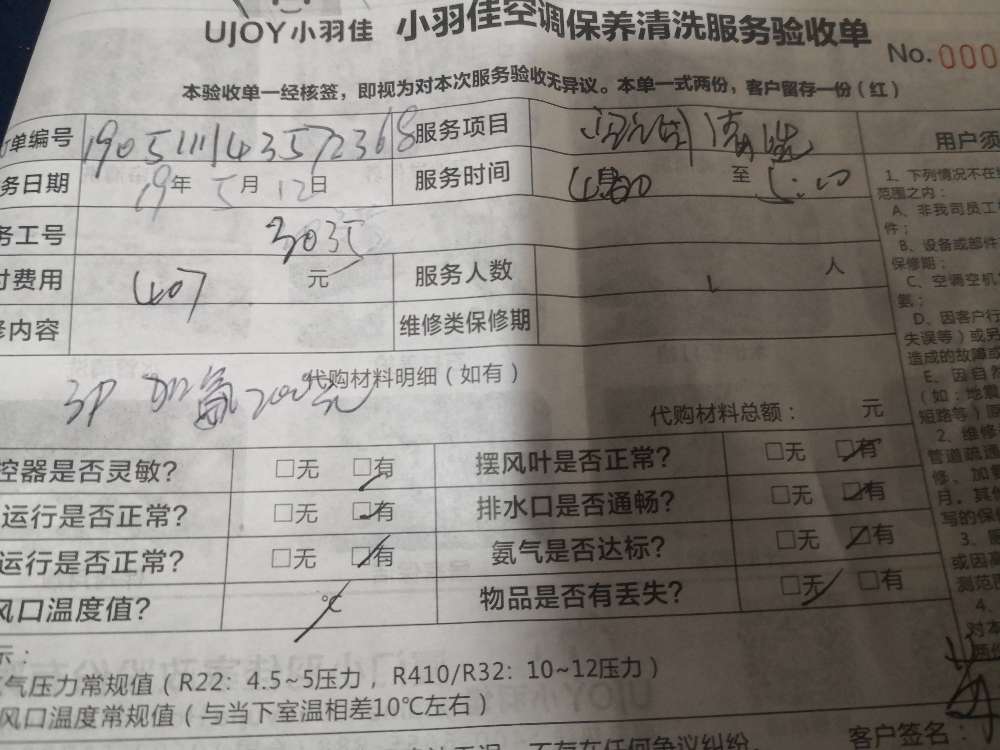 UJOY小羽佳 小羽佳空调保养清洗服务验收单
No.000
本验收单一经核签，即视为对本次服务验收无异议。本单一式两份，客户留存一份（红）
单编号 190511143572368 服务项目 清洗 用户须
务日期 19年5月12日 服务时间 至 5:00
务工号 3035
费用 元 服务人数 1 人
修内容 维修类保修期
1、下列情况不在
范围之内：
A、非我司员工
件；
B、设备或部件
保修期；
C、空调空机
氨；
D、因客户行
失误等）或另
造成的故障或
E、因自然
（如：地震
短路等）
代购材料明细（如有）
3P 加氨200元
代购材料总额： 元
控器是否灵敏? □无 □有 摆风叶是否正常? □无 □有
运行是否正常? □无 □有 排水口是否通畅? □无 □有
运行是否正常? □无 □有 氨气是否达标? □无 □有
风口温度值? ℃ 物品是否有丢失? □无 □有
2、维修
管道疏通
修、加
月，其
写的保
3、
或因
测范
4、
对本
两份
示：
气压力常规值（R22：4.5~5压力，R410/R32：10~12压力）
风口温度常规值（与当下室温相差10℃左右）
客户签名：
不存在任何争议纠纷